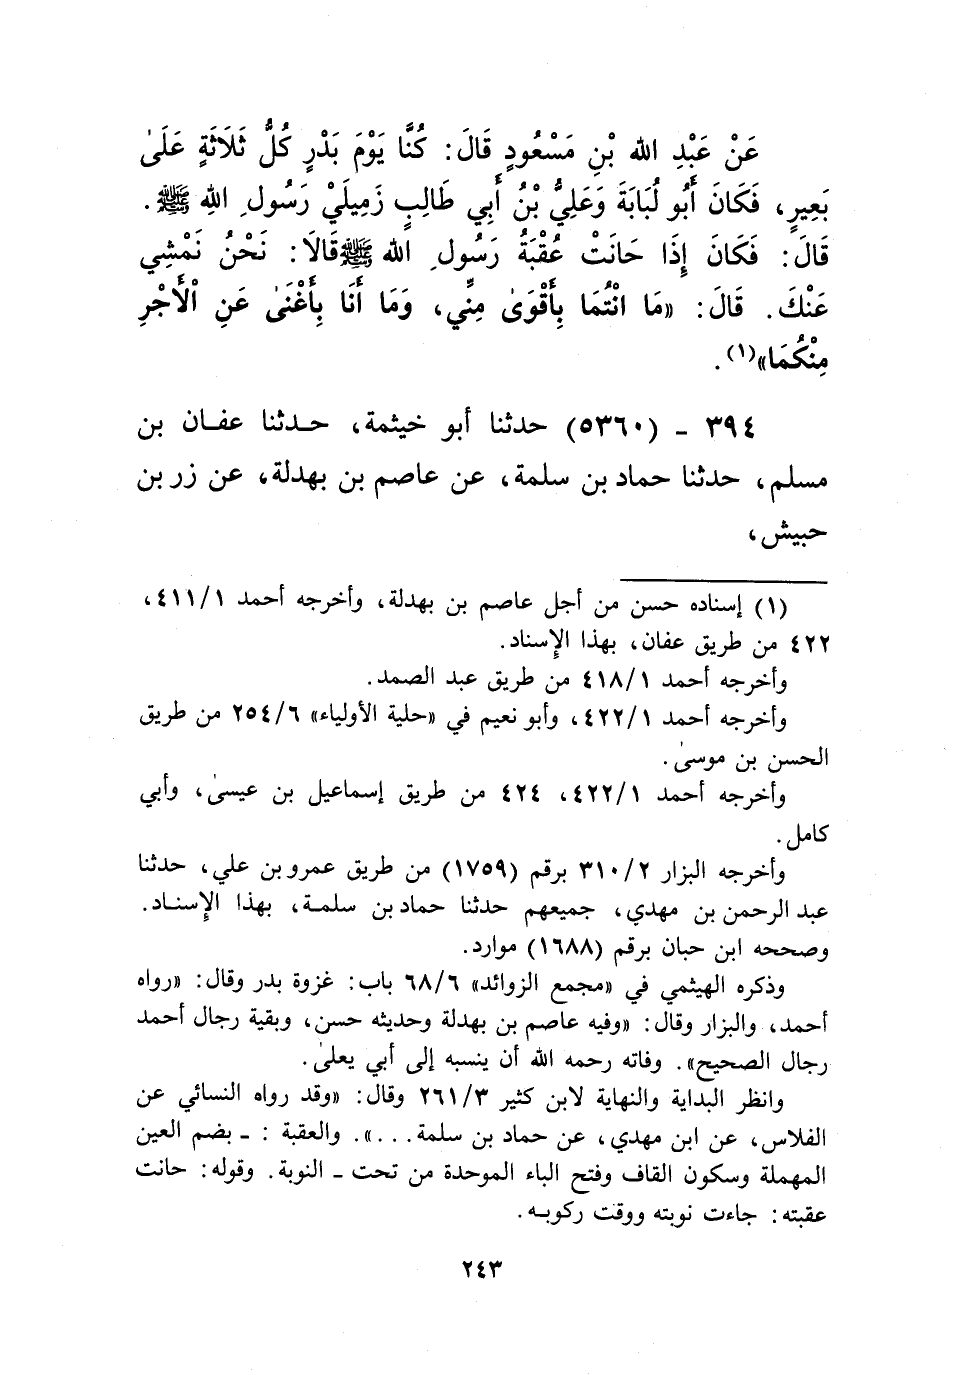 عَنْ عَبْدِ الله بْنِ مَسْعُودٍ قَالَ: كُنَّا يَوْمَ بَدْرٍ كُلُّ ثَلَاثَةٍ عَلَىٰ
بَعِيرٍ، فَكَانَ أَبُو لُبَابَةَ وَعَلِيُّ بْنُ أَبِي طَالِبٍ زَمِيلَيْ رَسُولِ اللهِ ﷺ.
قَالَ: فَكَانَ إِذَا حَانَتْ عُقْبَةُ رَسُولِ الله ﷺ قَالَا: نَحْنُ نَمْشِي
عَنْكَ. قَالَ: «مَا انْتُمَا بِأَقْوَىٰ مِنِّي، وَمَا أَنَا بِأَغْنَىٰ عَنِ الْأَجْرِ
مِنْكُمَا»(١).
٣٩٤ - (٥٣٦٠) حدثنا أبو خيثمة، حدثنا عفان بن
مسلم، حدثنا حماد بن سلمة، عن عاصم بن بهدلة، عن زر بن
حبيش،
(١) إسناده حسن من أجل عاصم بن بهدلة، وأخرجه أحمد ٤١١/١،
٤٢٢ من طريق عفان، بهذا الإسناد.
وأخرجه أحمد ٤١٨/١ من طريق عبد الصمد.
وأخرجه أحمد ٤٢٢/١، وأبو نعيم في «حلية الأولياء» ٢٥٤/٦ من طريق
الحسن بن موسىٰ.
وأخرجه أحمد ٤٢٢/١، ٤٢٤ من طريق إسماعيل بن عيسىٰ، وأبي
كامل.
وأخرجه البزار ٣١٠/٢ برقم (١٧٥٩) من طريق عمرو بن علي، حدثنا
عبد الرحمن بن مهدي، جميعهم حدثنا حماد بن سلمة، بهذا الإسناد.
وصححه ابن حبان برقم (١٦٨٨) موارد.
وذكره الهيثمي في «مجمع الزوائد» ٦٨/٦ باب: غزوة بدر وقال: «رواه
أحمد، والبزار وقال: «وفيه عاصم بن بهدلة وحديثه حسن، وبقية رجال أحمد
رجال الصحيح». وفاته رحمه الله أن ينسبه إلى أبي يعلىٰ.
وانظر البداية والنهاية لابن كثير ٢٦١/٣ وقال: «وقد رواه النسائي عن
الفلاس، عن ابن مهدي، عن حماد بن سلمة...». والعقبة: - بضم العين
المهملة وسكون القاف وفتح الباء الموحدة من تحت - النوبة. وقوله: حانت
عقبته: جاءت نوبته ووقت ركوبه.
٢٤٣